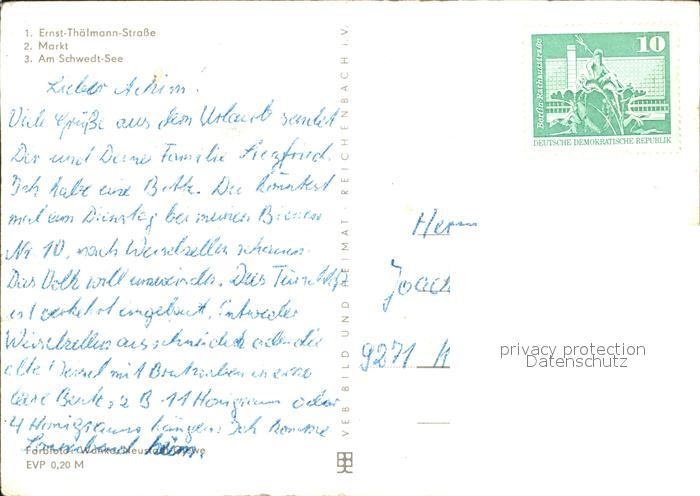 1. Ernst-Thälmann-Straße
2. Markt
3. Am Schwedt-See
Lieber Achim!
Viele Grüße aus dem Urlaub sendet
Dir und Deiner Familie Siegfried.
Ich habe eine Bitte. Du könntest
mal am Dienstag bei meinen Bienen
Nr 10, nach Weiselzellen schauen.
Das Volk will umweiseln. Das
ist verkehrt eingebaut. Entweder
Weiselzellen ausschneiden oder die
alte mit Brutwaben in eine
leere Beute, z B 11 Honigraum oder
4 Honigraum hängen. Ich komme
Sonnabend heim.
Farbfoto:
EVP 0,20 M
VEB BILD UND HEIMAT · REICHENBACH i. V.
10
Berlin-Rathausstraße
DEUTSCHE DEMOKRATISCHE REPUBLIK
Herrn
9271
privacy protection
Datenschutz